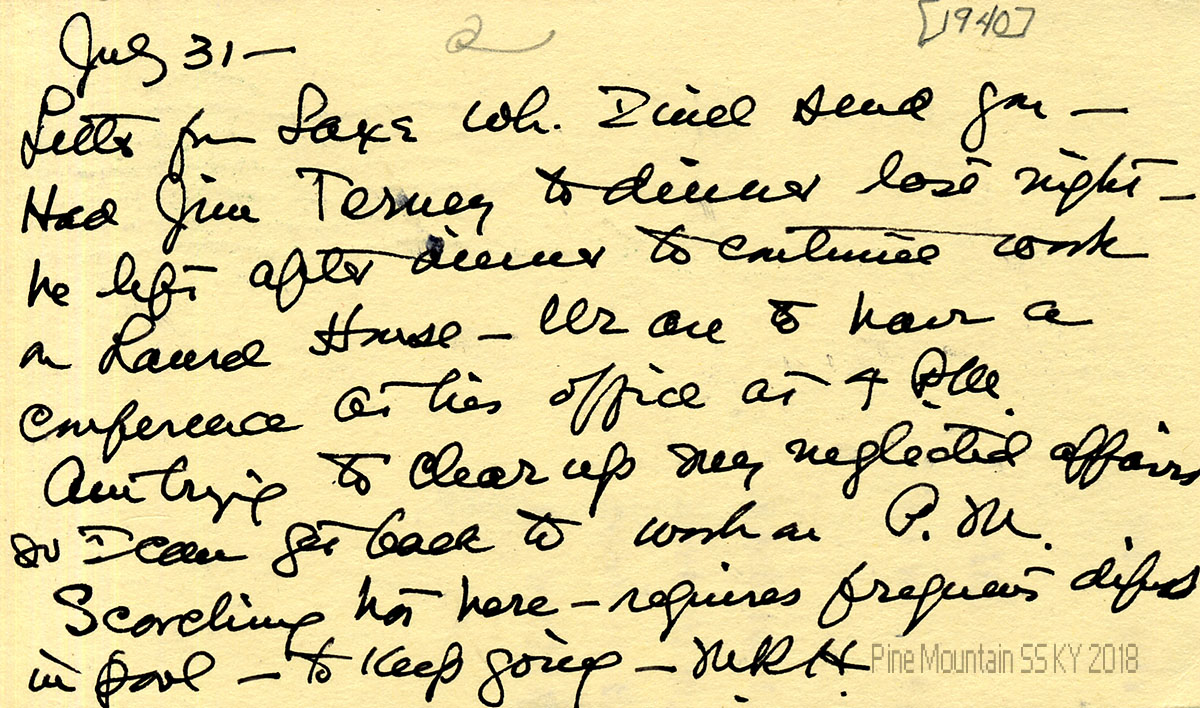 [1940]
2
July 31 —
Letter fm Saxe wh. I will send you —
Had Jim Terney to dinner last night —
he left after dinner to continue work
on Laurel House — We are to have a
conference at his office at 4 P.M.
Am trying to clear up my neglected affairs
so I can get back to work on P.M.
Scorching hot here — requires frequent
in pool — to keep going — M.R.H.
Pine Mountain SS KY 2018